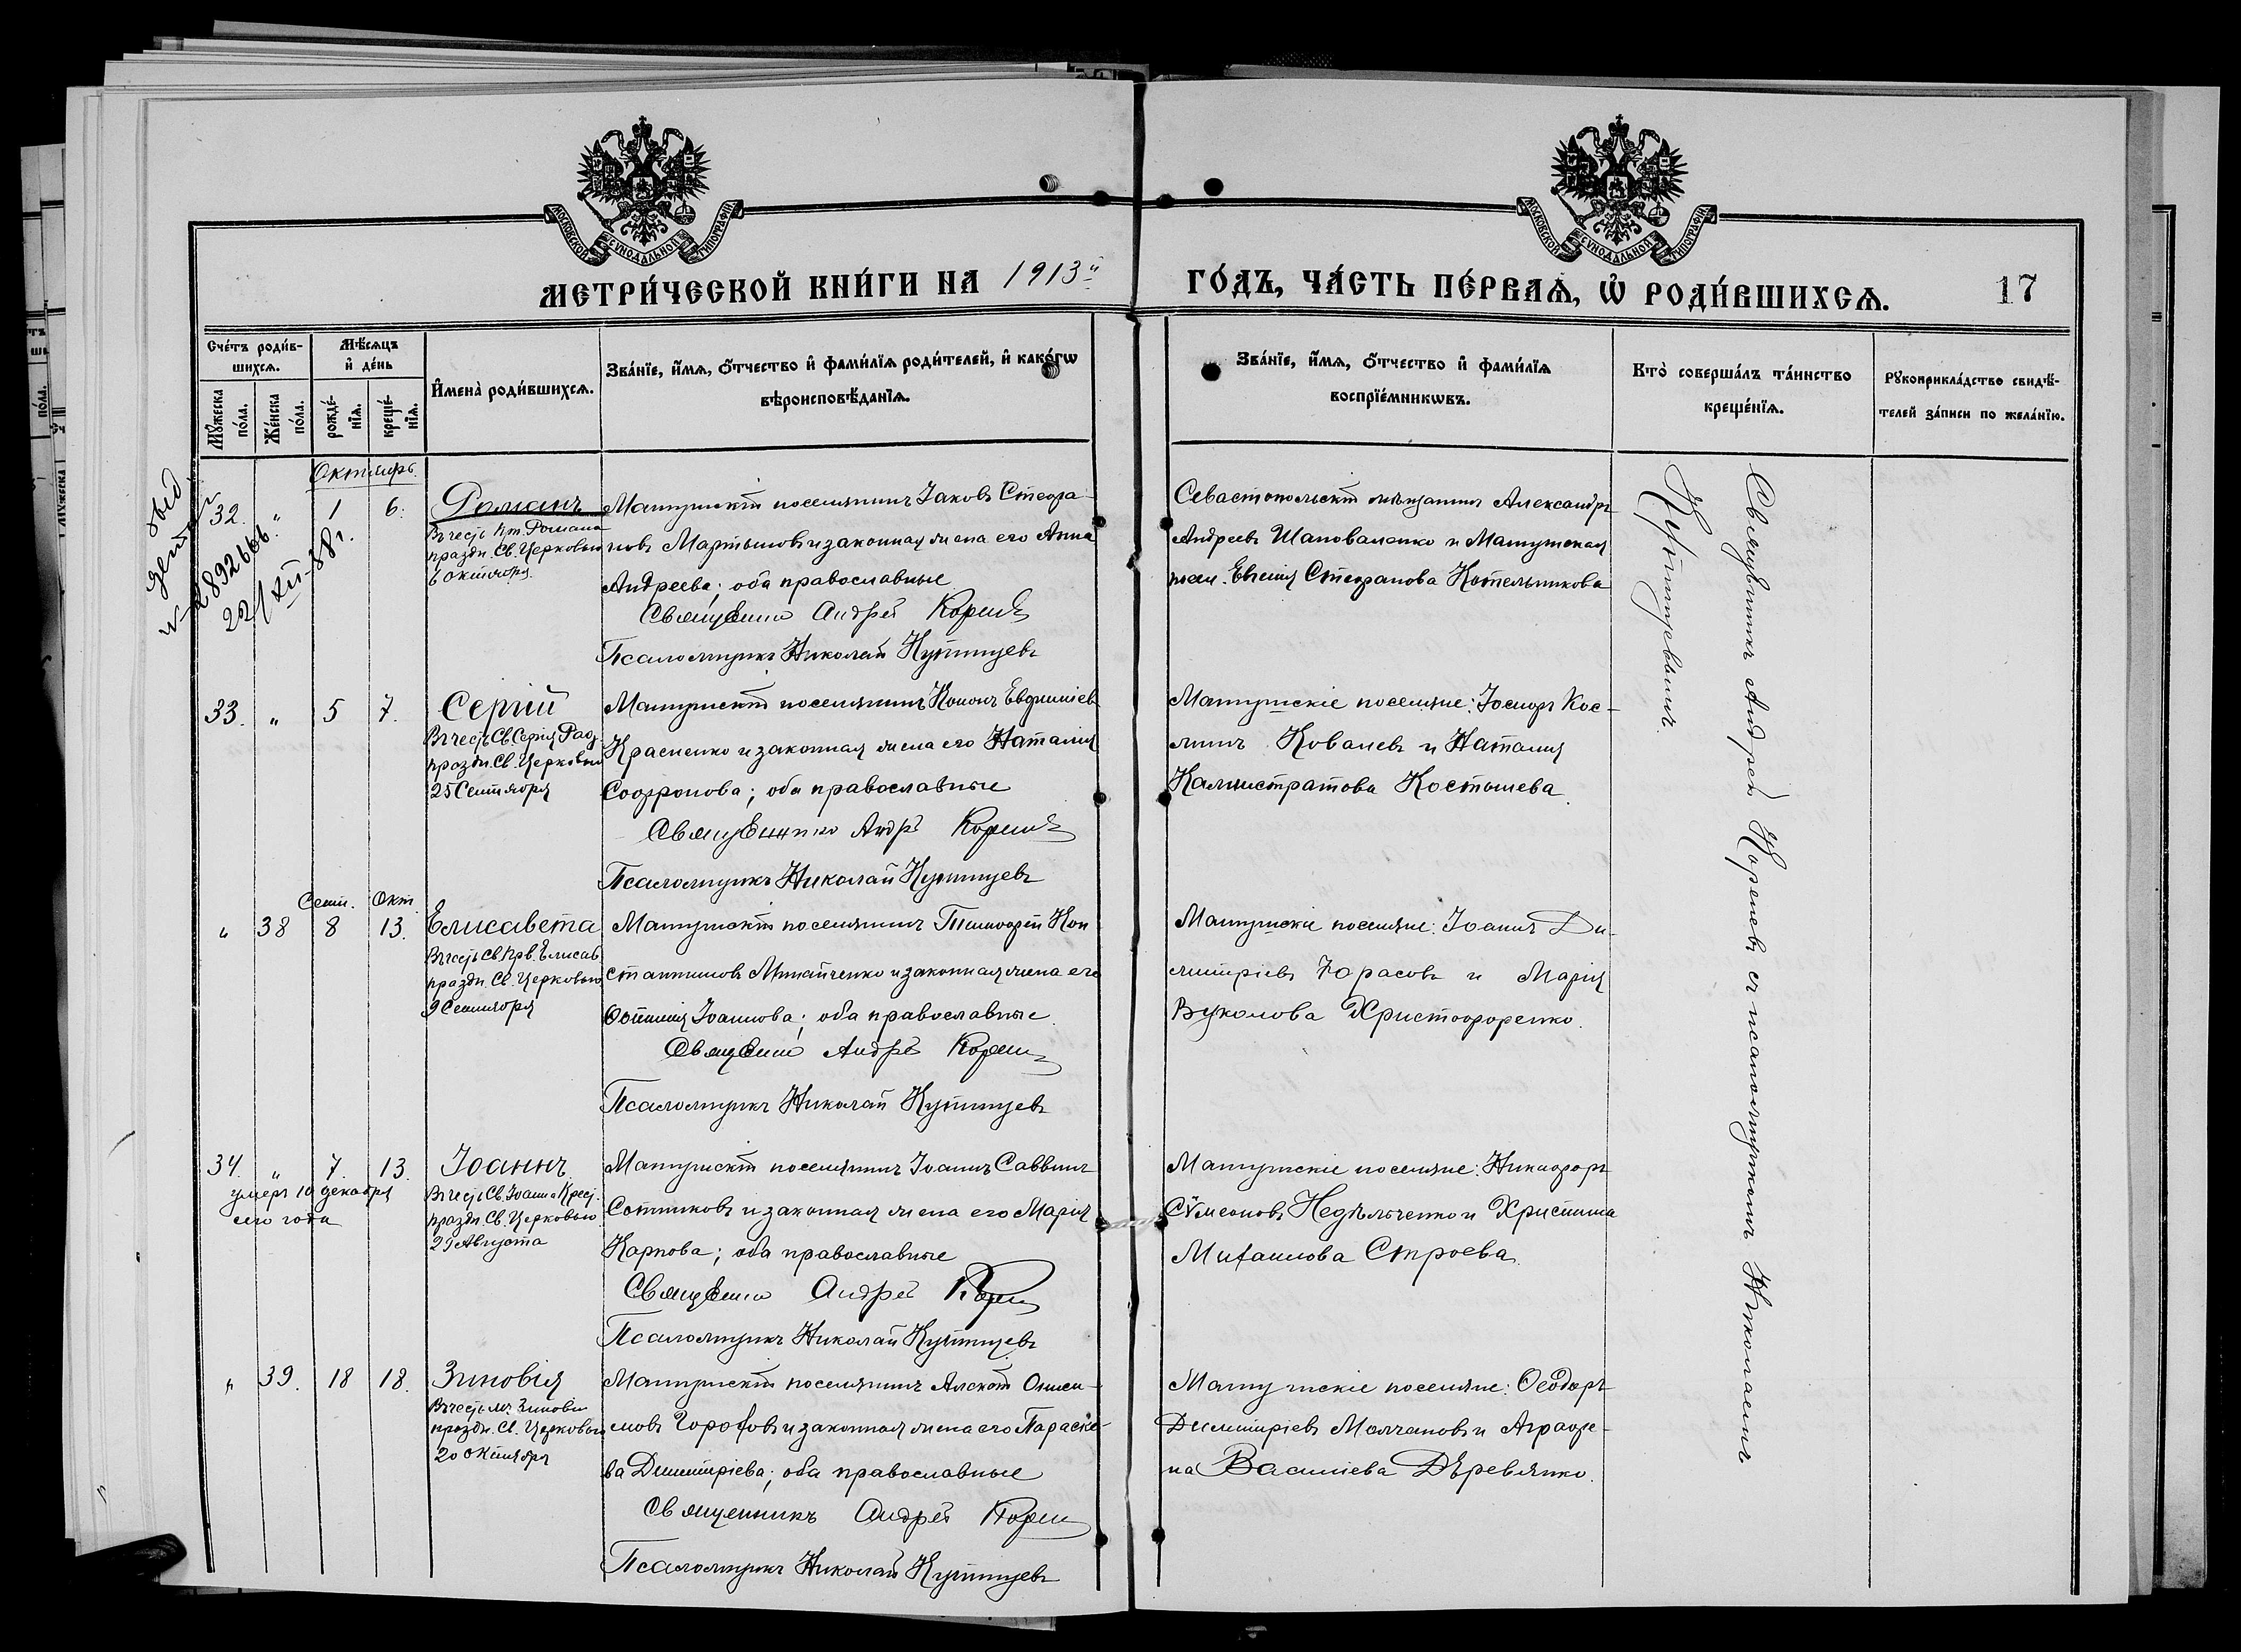 МОСКОВСКОЙ СѴНОДАЛЬНОЙ ТИПОГРАФІИ
МОСКОВСКОЙ СѴНОДАЛЬНОЙ ТИПОГРАФІИ
МЕТРИ́ЧЕСКОЙ КНИ́ГИ НА 1913й
ГО́ДЪ, ЧА́СТЬ ПЕ́РВАѦ, Ѡ҆ РОДИ́ВШИХСѦ.
17
Сче́тъ роди́в-
шихсѧ.
Мѣ́сѧцъ
и҆ де́нь
Мꙋ́жеска
по́ла.
Же́нска
по́ла.
рожде́-
нїѧ.
креще́-
нїѧ.
И҆мена̀ роди́вшихсѧ.
Зва́нїе, и҆́мѧ, ѻ҆́тчество и҆ фами́лїѧ роди́телей, и҆ како́гѡ
вѣроисповѣ́данїѧ.
Зва́нїе, и҆́мѧ, ѻ҆́тчество и҆ фами́лїѧ
воспрїе́мникѡвъ.
Кто̀ соверша́лъ та́инство
креще́нїѧ.
Рꙋкоприкла́дство свидѣ́-
телей за́писи по жела́нїю.
Октябрь.
32. " 1 6. Романъ
Въ честь Рмч. Романа
праздн. Св. Церковью
6 октября.
Матушскій поселянинъ Іаковъ Стефа-
новъ Мартыновъ и законная жена его Анна
Андреева; оба православные
Священникъ Андрей Корен
Псаломщикъ Николай Куттицевъ
Севастопольскій мѣщанинъ Александръ
Андреевъ Шаповаленко и Матушская
посел. Евгенія Стефанова Котельникова
выд
22/XII-38г.
33. " 5 7. Сергій
Въ честь Св. Сергія Рад.
праздн. Св. Церковью
25 Сентября
Матушскій поселянинъ Кононъ Евфиміевъ
Красненко и законная жена его Наталія
Софронова; оба православные
Священникъ Андрей Корен
Псаломщикъ Николай Куттицевъ
Матушскіе поселяне: Іосифъ Кос-
минъ Ковалевъ и Наталія
Каллистратова Костышева.
Сент. Окт.
" 38 8 13. Елисавета
Въ честь Св. Прв. Елисав.
праздн. Св. Церковью
9 Сентября
Матушскій поселянинъ Тимофей Кон
стантиновъ Митайченко и законная жена его
Іоаннова; оба православные
Священникъ Андрей Корен
Псаломщикъ Николай Куттицевъ
Матушскіе поселяне: Іоаннъ Ди-
митріевъ Юрасовъ и Марія
Вуколова Христофоренко.
34. " 7. 13. Іоаннъ
умеръ 10 декабря
сего года
Въ честь Св. Іоанна Крест.
праздн. Св. Церковью
29 Августа
Матушскій поселянинъ Іоаннъ Саввинъ
Сотниковъ и законная жена его Марія
Карпова; оба православные
Священникъ Андрей Корен
Псаломщикъ Николай Куттицевъ
Матушскіе поселяне: Никифоръ
Сѵмеоновъ Недѣльченко и Христина
Михаилова Строева.
" 39. 18 18. Зиновія
Въ честь мч. Зиновіи
праздн. Св. Церковью
20 октября
Матушскій поселянинъ Алексѣй Ониси-
мовъ Гороховъ и законная жена его Параске-
ва Димитріева; оба православные
Священникъ Андрей Корен
Псаломщикъ Николай Куттицевъ
Матушскіе поселяне: Ѳеодоръ
Димитріевъ Молчановъ и Аграфе-
на Василіева Деревянко.
Священникъ Андрей Кореневъ съ псаломщикомъ Николаемъ
Куттицевымъ.